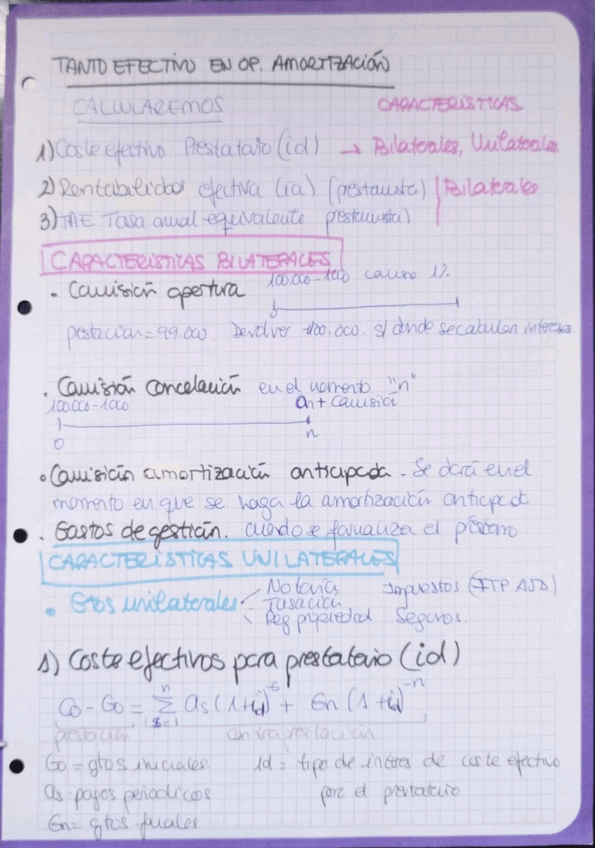 TANTO EFECTIVO EN OP. AMORTIZACIÓN
CALCULAREMOS
CARACTERÍSTICAS
1) Coste efectivo Prestatario (id) → Bilaterales, Unilaterales
2) Rentabilidad efectiva (ia) (prestamista) Bilaterales
3) TAE Tasa anual equivalente prestamista)
CARACTERÍSTICAS BILATERALES
· Comisión apertura
100.000-1000 comisión 1%
prestación=99.000 Devolver 100.000. s/ donde se calculan intereses
· Comisión cancelación en el momento "n"
100.000-1000 an + comisión
0 n
· Comisión amortización anticipada. Se dará en el
momento en que se haga la amortización anticipada
· Gastos de gestión. cuando se formaliza el préstamo
CARACTERÍSTICAS UNILATERALES
· Gtos unilaterales
Notaría
Tasación
Reg propiedad
Impuestos (ITP AJD)
Seguros.
1) Coste efectivos para prestatario (id)
C0 - G0 = n Σ s=1 as (1+id)^-s + Gn (1+id)^-n
prestación contraprestación
G0 = gtos iniciales id = tipo de interes de coste efectivo
as = pagos periodicos para el prestatario
Gn = gtos finales